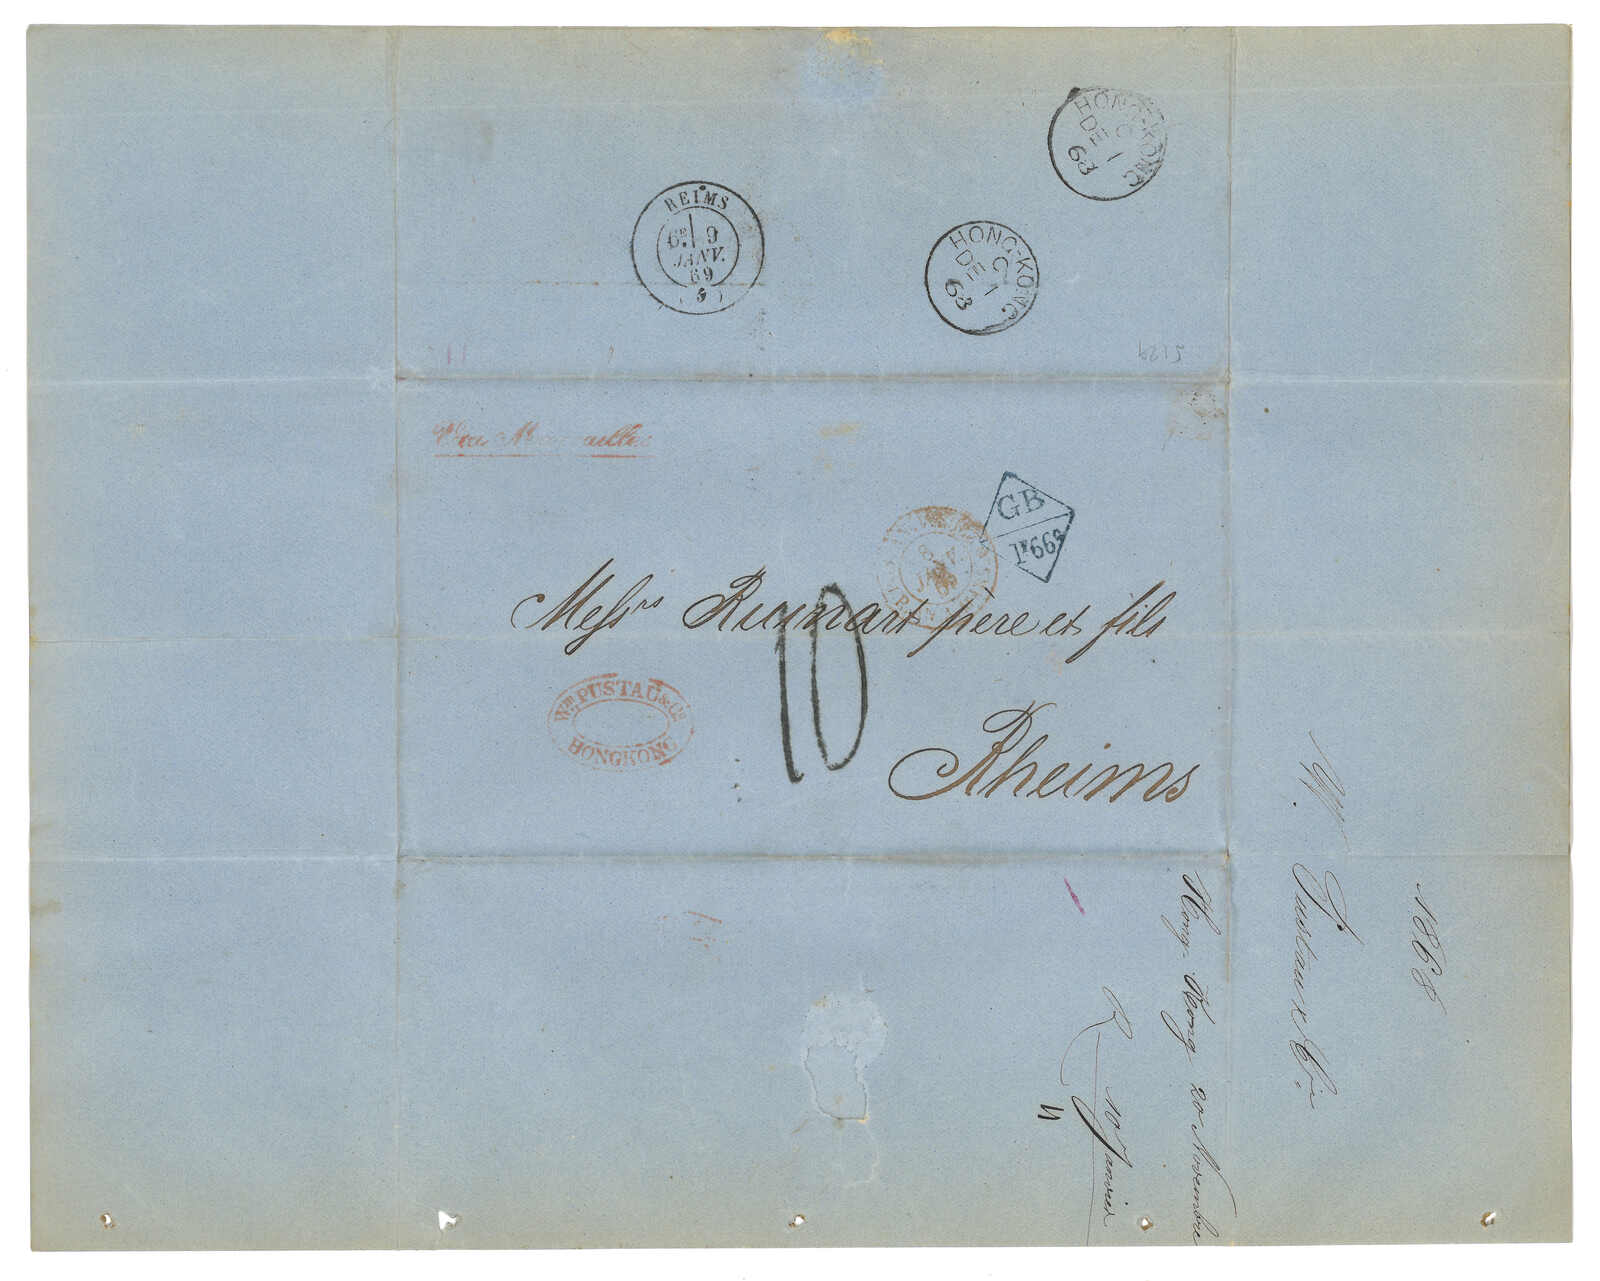 HONG-KONG
C
DE 1
63
REIMS
6E 9
JANV.
69
HONG-KONG
C
DE 1
63
5129
Via Marseille
GB
1F66c
8
JANV
69
Messrs Ruinart père et fils
10
Wm PUSTAU & Co
HONGKONG
Rheims
1868
W Pustau x Cie
Hong-Kong 20 Novembre
R 10 Janvier